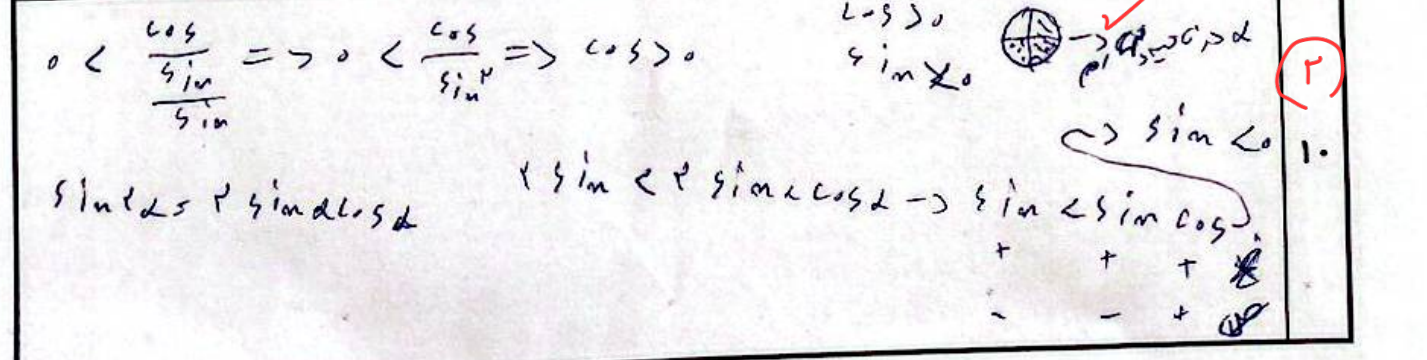 0 < cos/(sin/sin) => 0 < cos/sin² => cos > 0
cos > 0
sin < 0
۲
↪ sin < 0
۱۰
sin۲α = ۲ sinα cosα
۲ sin < ۲ sinα cosα → sin < sin cos
+ + +
- - +